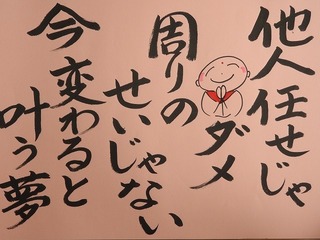 他人任せじゃ
ダメ
周りの
せいじゃない
今変わると
叶う夢